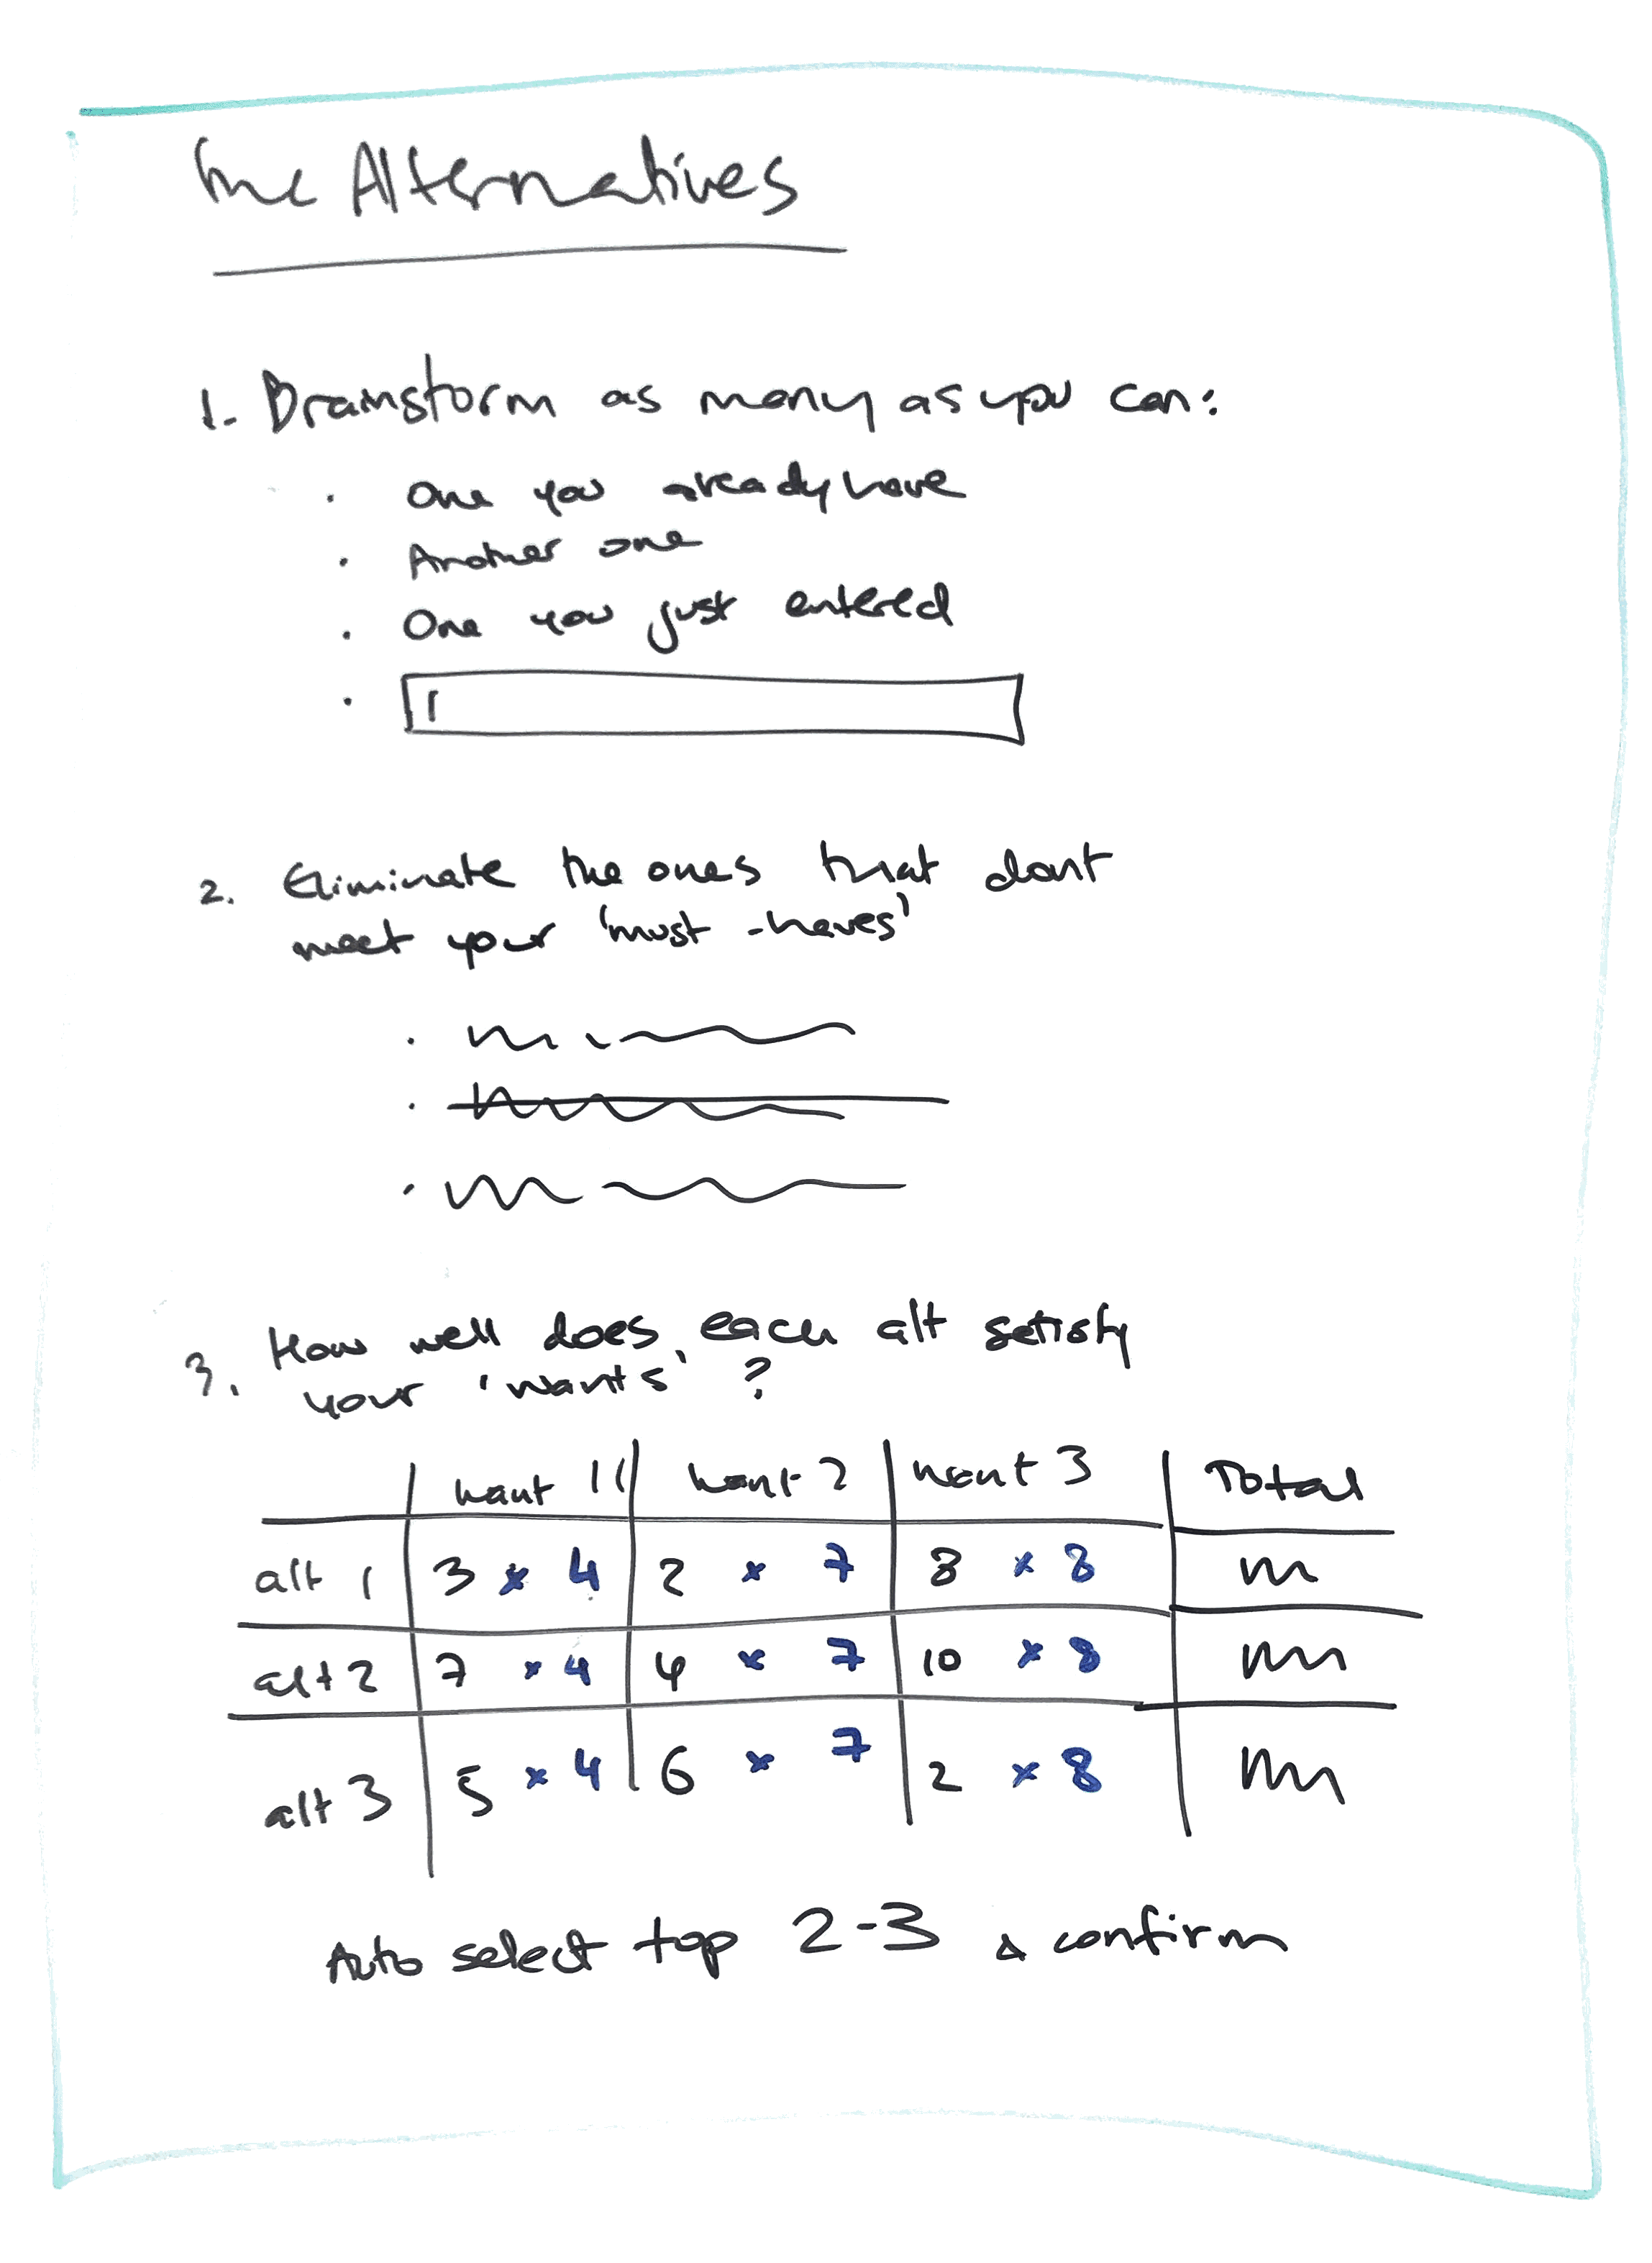 The Alternatives
1. Brainstorm as many as you can:
· One you already have
· Another one
· One you just entered
2. Eliminate the ones that dont
meet your 'must-haves'
3. How well does each alt satisfy
your 'wants' ?
want 1 want 2 want 3 Total
alt 1 3 × 4 2 × 7 8 × 8
alt 2 7 × 4 4 × 7 10 × 8
alt 3 5 × 4 6 × 7 2 × 8
Auto select top 2-3 & confirm